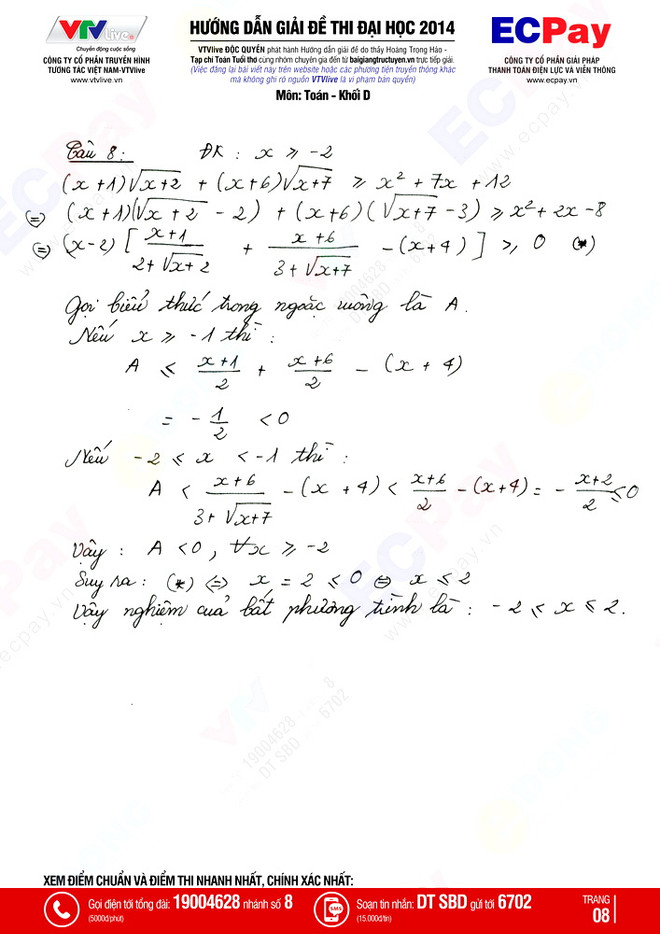 VTV Live
Chuyển động cuộc sống
CÔNG TY CỔ PHẦN TRUYỀN HÌNH
TƯƠNG TÁC VIỆT NAM-VTVlive
www.vtvlive.vn
HƯỚNG DẪN GIẢI ĐỀ THI ĐẠI HỌC 2014
VTVlive ĐỘC QUYỀN phát hành Hướng dẫn giải đề do thầy Hoàng Trọng Hảo -
Tạp chí Toán Tuổi thơ cùng nhóm chuyên gia đến từ baigiangtructuyen.vn trực tiếp giải.
(Việc đăng lại bài viết này trên website hoặc các phương tiện truyền thông khác
mà không ghi rõ nguồn VTVlive là vi phạm bản quyền)
Môn: Toán - Khối D
ECPay
CÔNG TY CỔ PHẦN GIẢI PHÁP
THANH TOÁN ĐIỆN LỰC VÀ VIỄN THÔNG
www.ecpay.vn
Câu 8: ĐK: x ≥ -2
(x+1)√(x+2) + (x+6)√(x+7) ≥ x² + 7x + 12
(=) (x+1)(√(x+2) - 2) + (x+6)(√(x+7) - 3) ≥ x² + 2x - 8
(=) (x-2) [ (x+1)/(2+√(x+2)) + (x+6)/(3+√(x+7)) - (x+4) ] ≥ 0 (*)
Gọi biểu thức trong ngoặc vuông là A.
Nếu x ≥ -1 thì:
A ≤ (x+1)/2 + (x+6)/2 - (x+4)
= -1/2 < 0
Nếu -2 ≤ x < -1 thì:
A < (x+6)/(3+√(x+7)) - (x+4) < (x+6)/2 - (x+4) = -(x+2)/2 ≤ 0
Vậy: A < 0, ∀x ≥ -2
Suy ra: (*) (=) x = 2 ≤ 0 ⇔ x ≤ 2
Vậy nghiệm của bất phương trình là: -2 ≤ x ≤ 2.
XEM ĐIỂM CHUẨN VÀ ĐIỂM THI NHANH NHẤT, CHÍNH XÁC NHẤT:
Gọi điện tới tổng đài: 19004628 nhánh số 8
(5000đ/phút)
SMS
Soạn tin nhắn: DT SBD gửi tới 6702
(15.000đ/tin)
TRANG
08